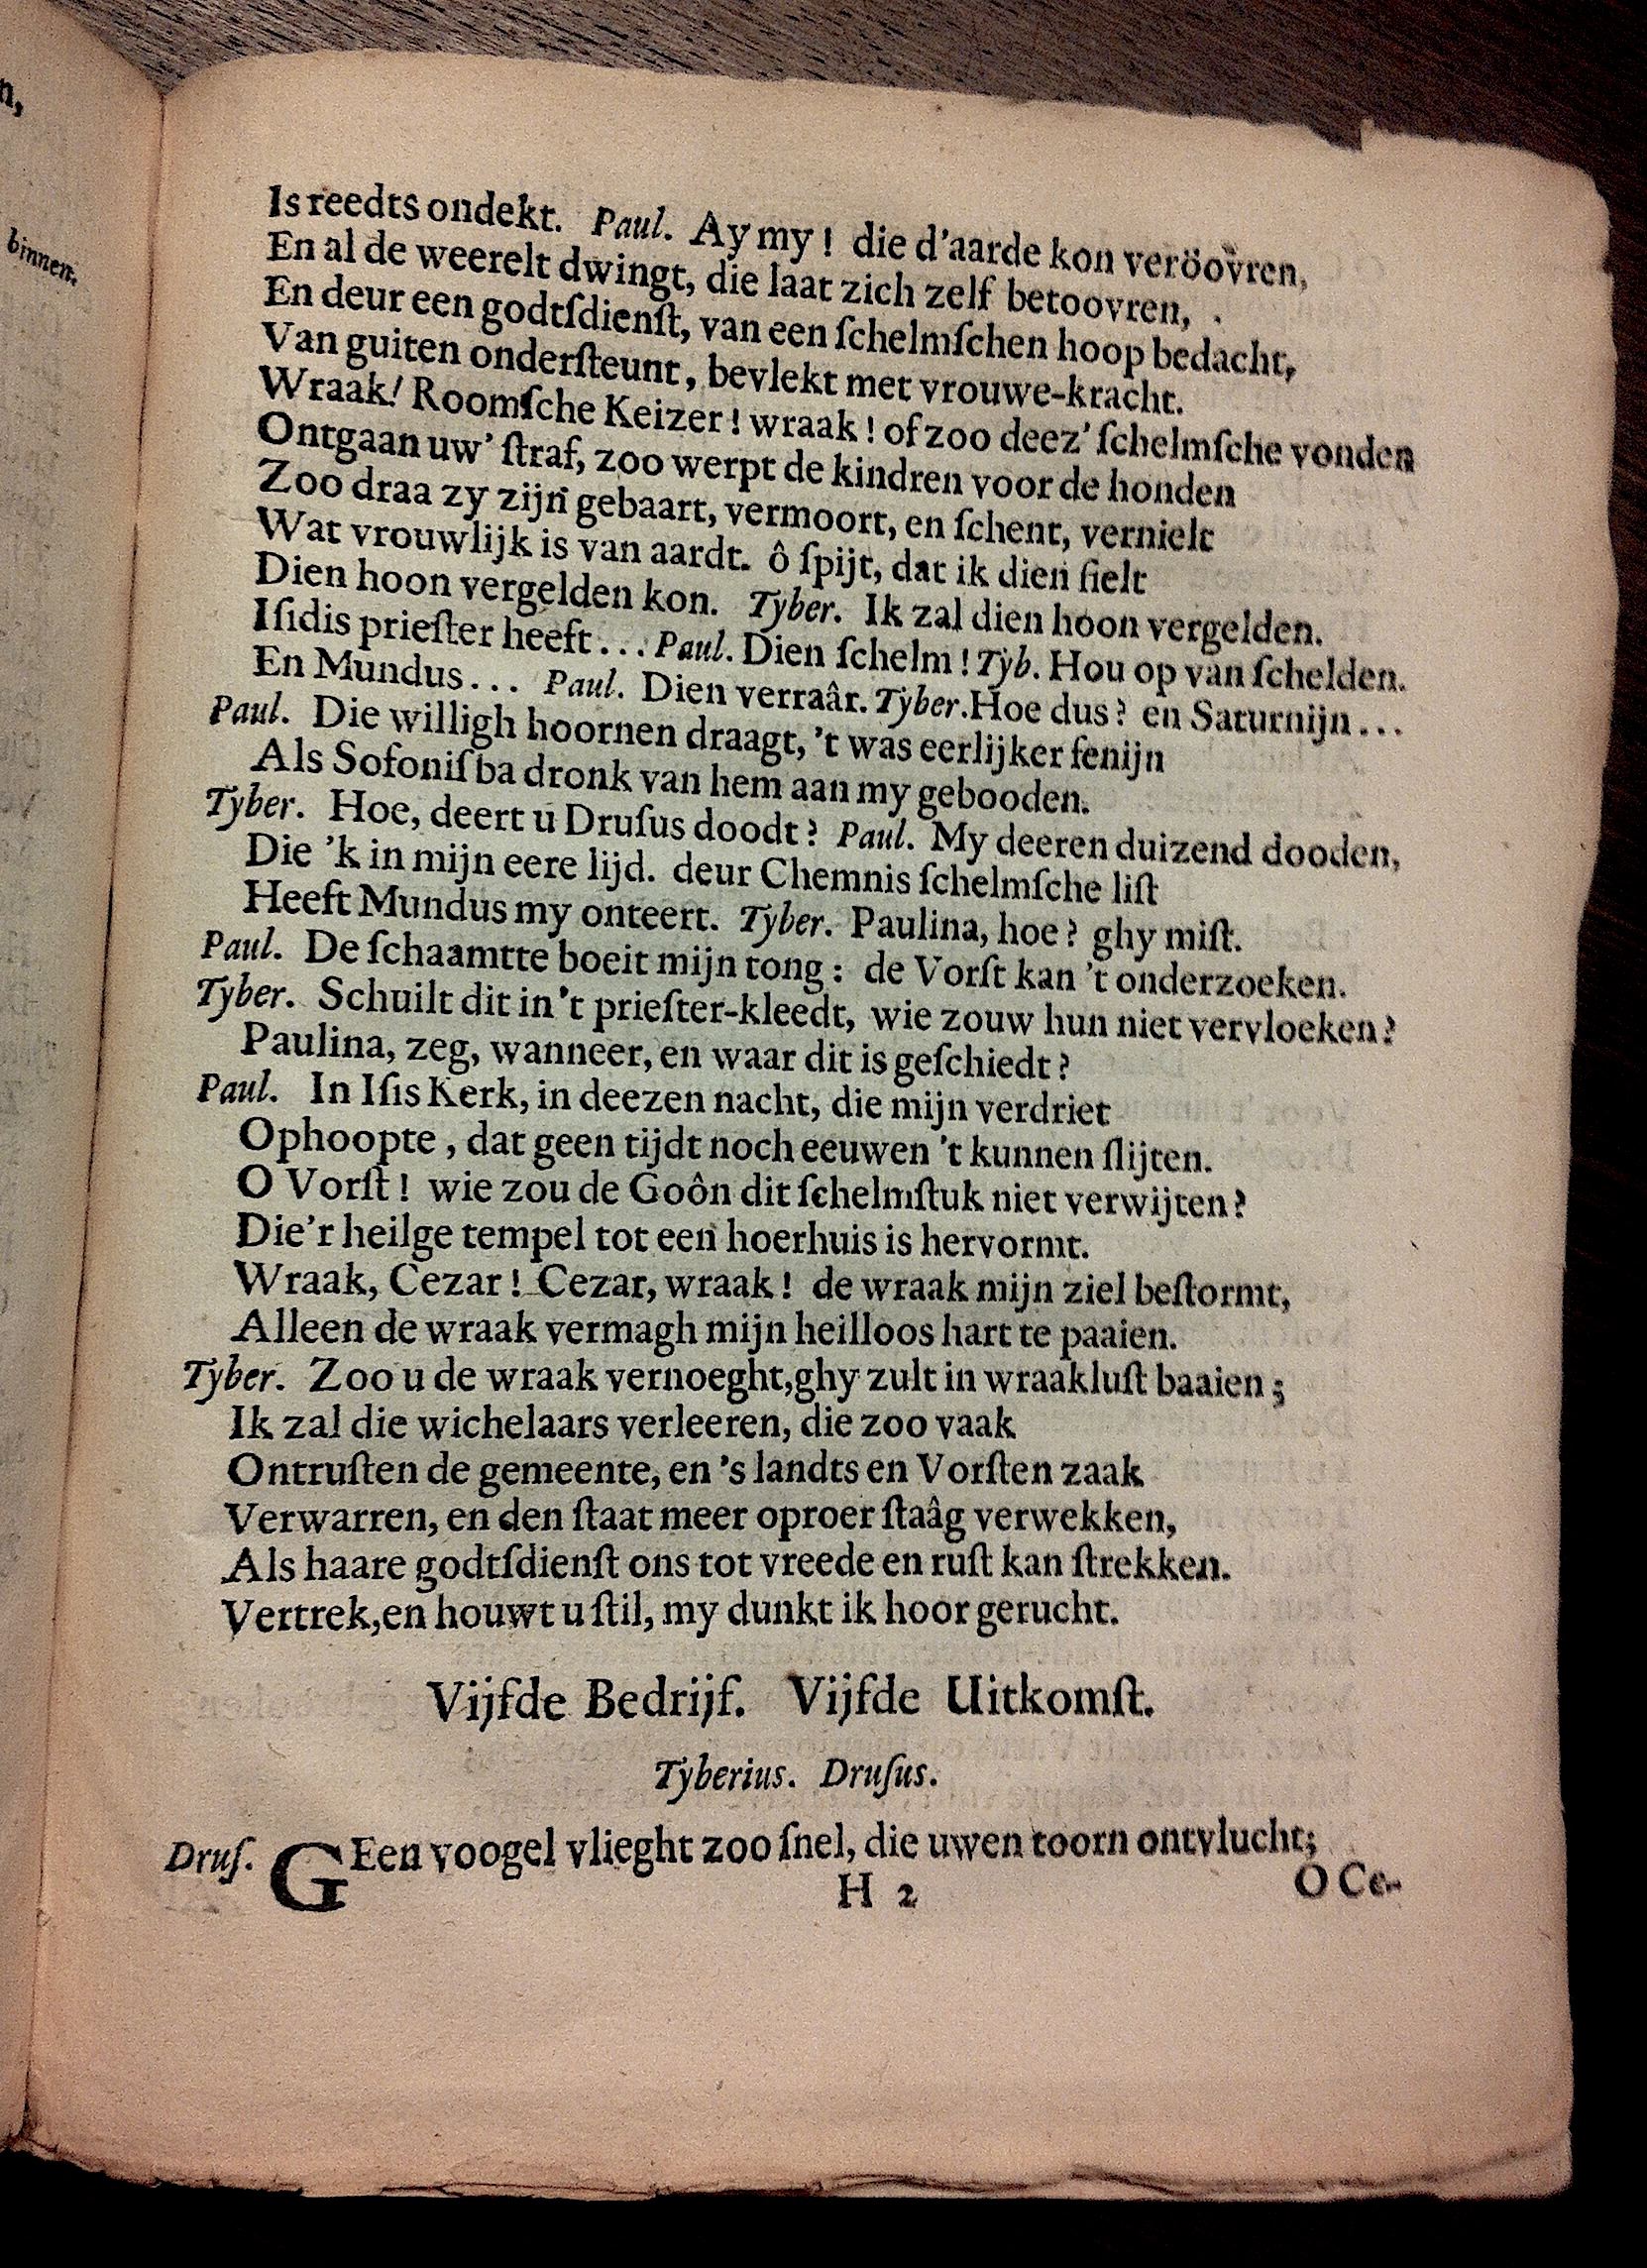 n,
binnen.
Is reedts ondekt. Paul. Ay my! die d'aarde kon veröovren,
En al de weerelt dwingt, die laat zich zelf betoovren,
En deur een godtſdienſt, van een ſchelmſchen hoop bedacht,
Van guiten onderſteunt, bevlekt met vrouwe-kracht.
Wraak! Roomſche Keizer! wraak! of zoo deez' ſchelmſche vonden
Ontgaan uw' ſtraf, zoo werpt de kindren voor de honden
Zoo draa zy zijn gebaart, vermoort, en ſchent, vernielt
Wat vrouwlijk is van aardt. ô ſpijt, dat ik dien fielt
Dien hoon vergelden kon. Tyber. Ik zal dien hoon vergelden.
Iſidis prieſter heeft... Paul. Dien ſchelm! Tyb. Hou op van ſchelden.
En Mundus... Paul. Dien verraâr. Tyber. Hoe dus? en Saturnijn...
Paul. Die willigh hoornen draagt, 't was eerlijker fenijn
Als Sofoniſba dronk van hem aan my gebooden.
Tyber. Hoe, deert u Druſus doodt? Paul. My deeren duizend dooden,
Die 'k in mijn eere lijd. deur Chemnis ſchelmſche liſt
Heeft Mundus my onteert. Tyber. Paulina, hoe? ghy miſt.
Paul. De ſchaamtte boeit mijn tong: de Vorſt kan 't onderzoeken.
Tyber. Schuilt dit in 't prieſter-kleedt, wie zouw hun niet vervloeken?
Paulina, zeg, wanneer, en waar dit is geſchiedt?
Paul. In Iſis Kerk, in deezen nacht, die mijn verdriet
Ophoopte, dat geen tijdt noch eeuwen 't kunnen ſlijten.
O Vorſt! wie zou de Goôn dit ſchelmſtuk niet verwijten?
Die'r heilge tempel tot een hoerhuis is hervormt.
Wraak, Cezar! Cezar, wraak! de wraak mijn ziel beſtormt,
Alleen de wraak vermagh mijn heilloos hart te paaien.
Tyber. Zoo u de wraak vernoeght, ghy zult in wraakluſt baaien;
Ik zal die wichelaars verleeren, die zoo vaak
Ontruſten de gemeente, en 's landts en Vorſten zaak
Verwarren, en den ſtaat meer oproer ſtaâg verwekken,
Als haare godtſdienſt ons tot vreede en ruſt kan ſtrekken.
Vertrek, en houwt u ſtil, my dunkt ik hoor gerucht.
Vijfde Bedrijf. Vijfde Uitkomſt.
Tyberius. Druſus.
Druſ. GEen voogel vlieght zoo ſnel, die uwen toorn ontvlucht;
H 2 O Ce-